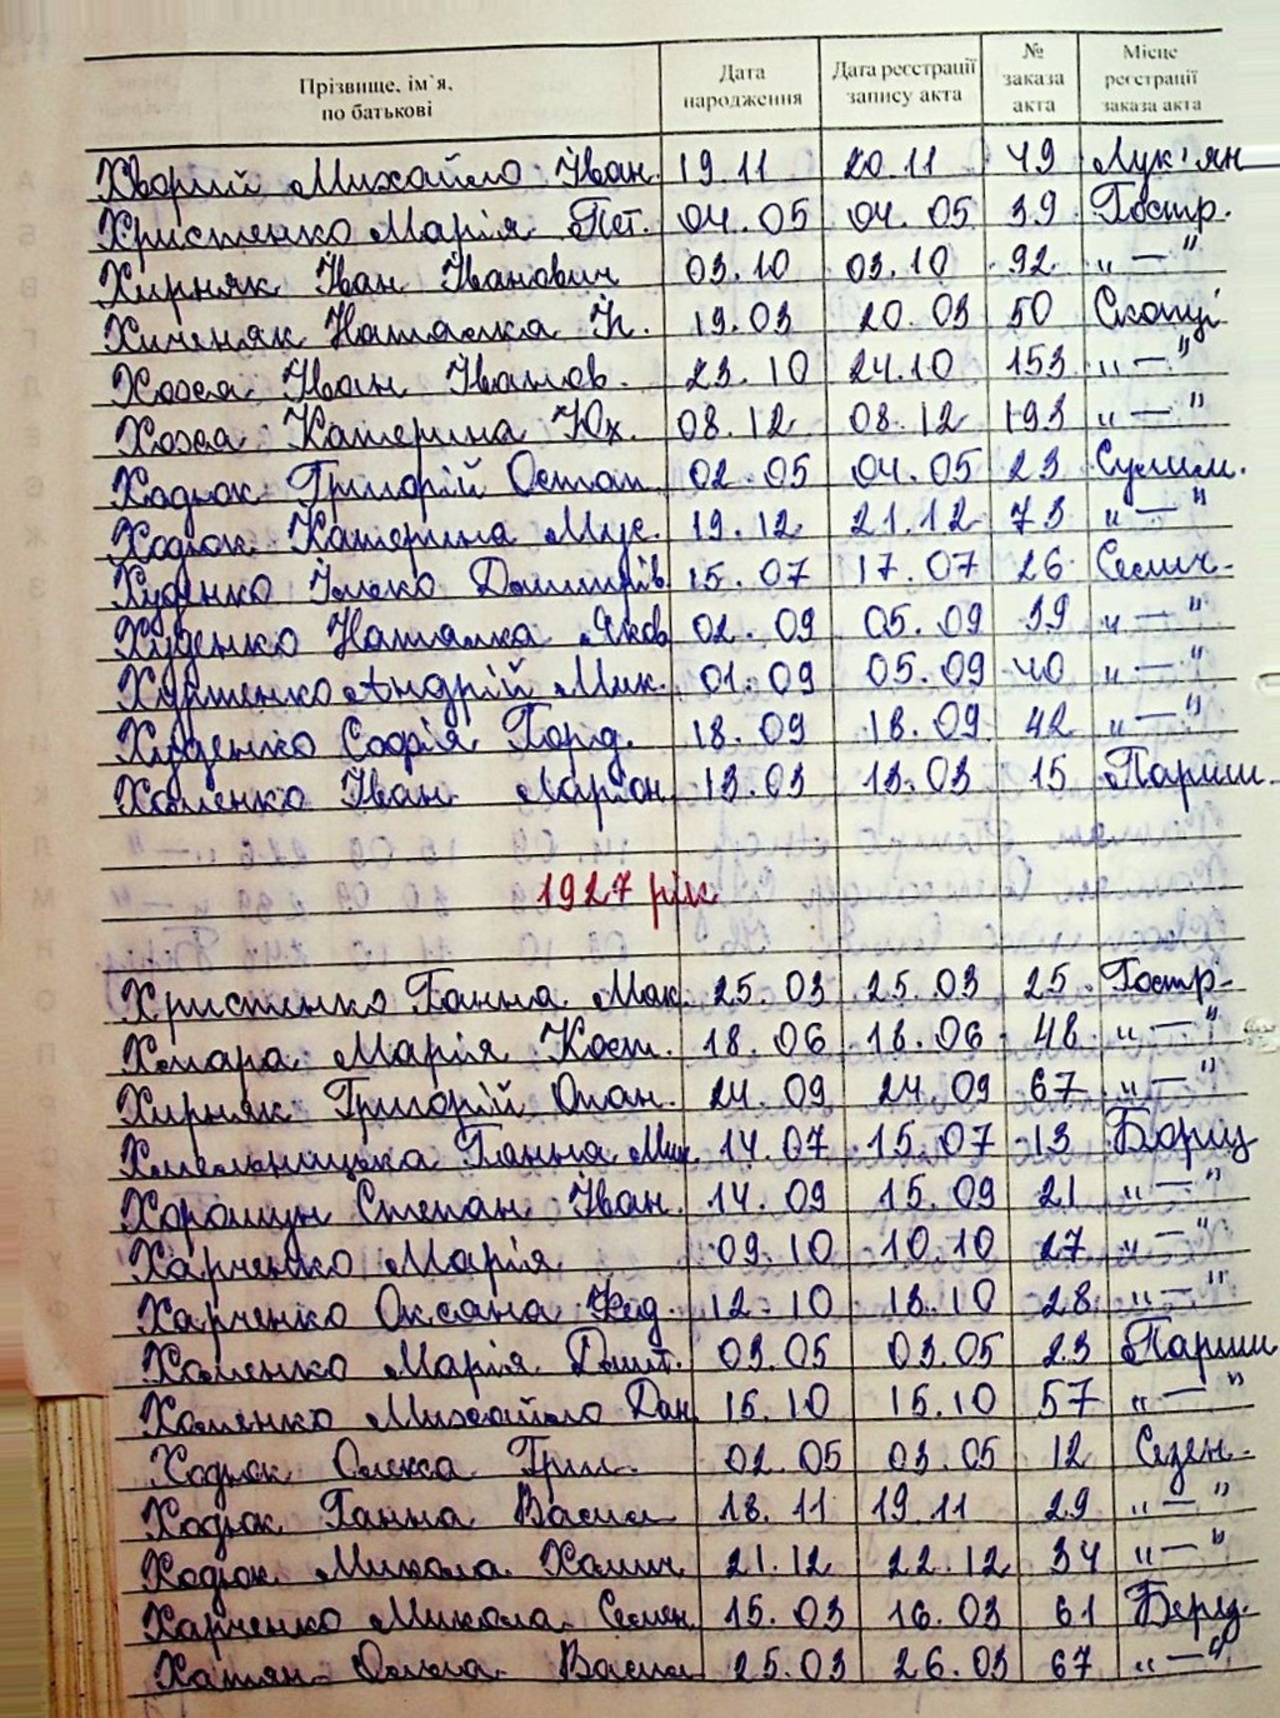 Прізвище, ім`я, по батькові Дата народження Дата реєстрації запису акта № заказа акта Місце реєстрації заказа акта
Хворий Михайло Іван. 19.11 20.11 49 Лук'ян
Христенко Марія Пет. 04.05 04.05 39 Гостр.
Хирняк Іван Іванович 03.10 03.10 92 „ — "
Наталка 19.03 20.03 50 Скопці
Хожа Іван Іванов. 23.10 24.10 153 „ — "
Хожа Катерина Юх. 08.12 08.12 193 „ — "
Ходюк Григорій Остап 02.05 04.05 23 Сулим.
Ходюк Катерина Мус. 19.12 21.12 73 „ — "
Худенко Ілько Дмитрів 15.07 17.07 26
Худенко Наталка Яков 02.09 05.09 39 „ — "
Андрій Мик. 01.09 05.09 40 „ — "
Худенко Софія Горд. 18.09 18.09 42 „ — "
Хоменко Іван Ларіон 13.03 13.03 15 Париш
1927 рік
Христенко Ганна Мак. 25.03 25.03 25 Гостр.
Хмара Марія Кост. 18.06 18.06 48 „ — "
Хирняк Григорій Опан. 24.09 24.09 67 „ — "
Хмельницька Ганна Мих. 14.07 15.07 13 Борщ
Хорошун Степан Іван. 14.09 15.09 21 „ — "
Харченко Марія 09.10 10.10 27 „ — "
Харченко Оксана Фед. 12.10 13.10 28 „ — "
Хоменко Марія Дмит. 03.05 03.05 23 Париш
Хоменко Михайло Дан. 15.10 15.10 57 „ — "
Ходюк Олекса Григ. 02.05 03.05 12 Сезен.
Ходюк Ганна Васил 18.11 19.11 29 „ — "
Ходюк Микола 21.12 22.12 34 „ — "
Харченко Микола Семен. 15.03 16.03 61 Беред.
Хатян Ольга Васил 25.03 26.03 67 „ — "